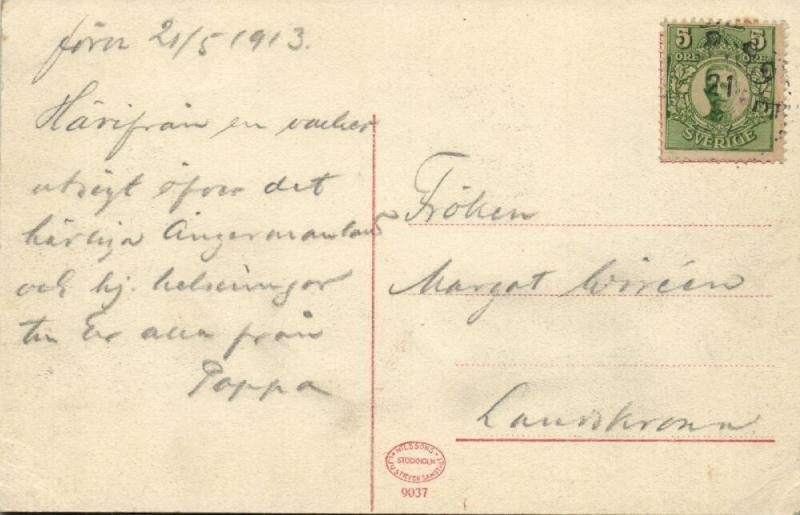 21/5 1913.
Härifrån en vacker
utsigt öfver det
härliga Ångermanland
och hj. helsningar
till Er alla från
Pappa
5 5
ÖRE ÖRE
SVERIGE
21
Fröken
Margot Wiréen
Landskrona
NILSSONS
STOCKHOLM
LJUSTRYCKSANSTALT
9037